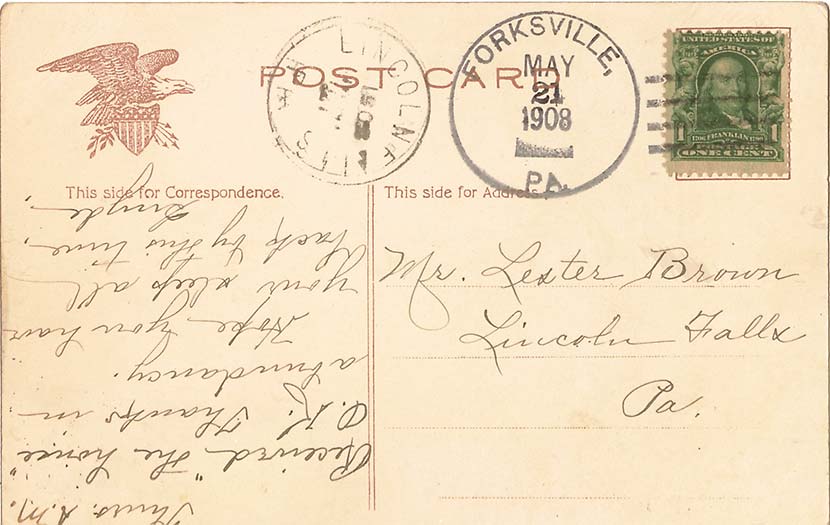 POST CARD
LINCOLN FALLS
MAY
1908
FORKSVILLE,
MAY
21
1908
PA.
UNITED STATES
OF AMERICA
1706 FRANKLIN 1790
1 POSTAGE
ONE CENT
This side for Correspondence.
This side for Address
Mr. Lester Brown
Lincoln Falls
Pa.
Thurs. A.M.
Received "the
O.K. Thanks in
abundancy.
Hope you have
your sleep all
back by this time.